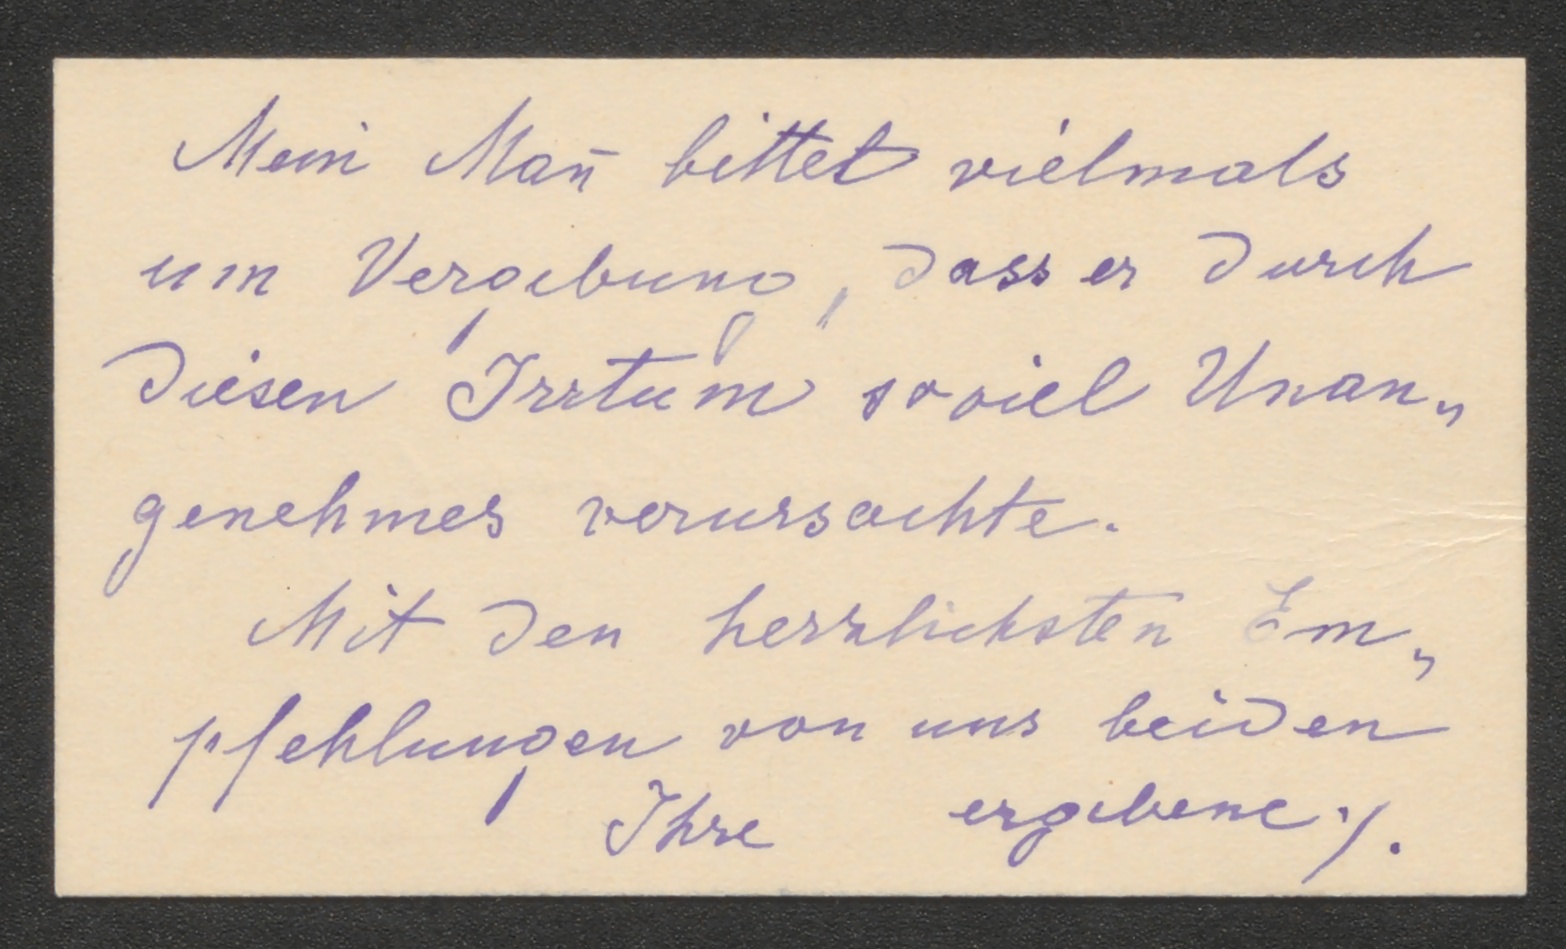 Mein Man̄ bittet vielmals
um Vergebung, dass er durch
diesen Irrtum soviel Unan„
genehmes verursachte.
Mit den herzlichsten Em„
pfehlungen von uns beiden
Ihre ergebene ./.